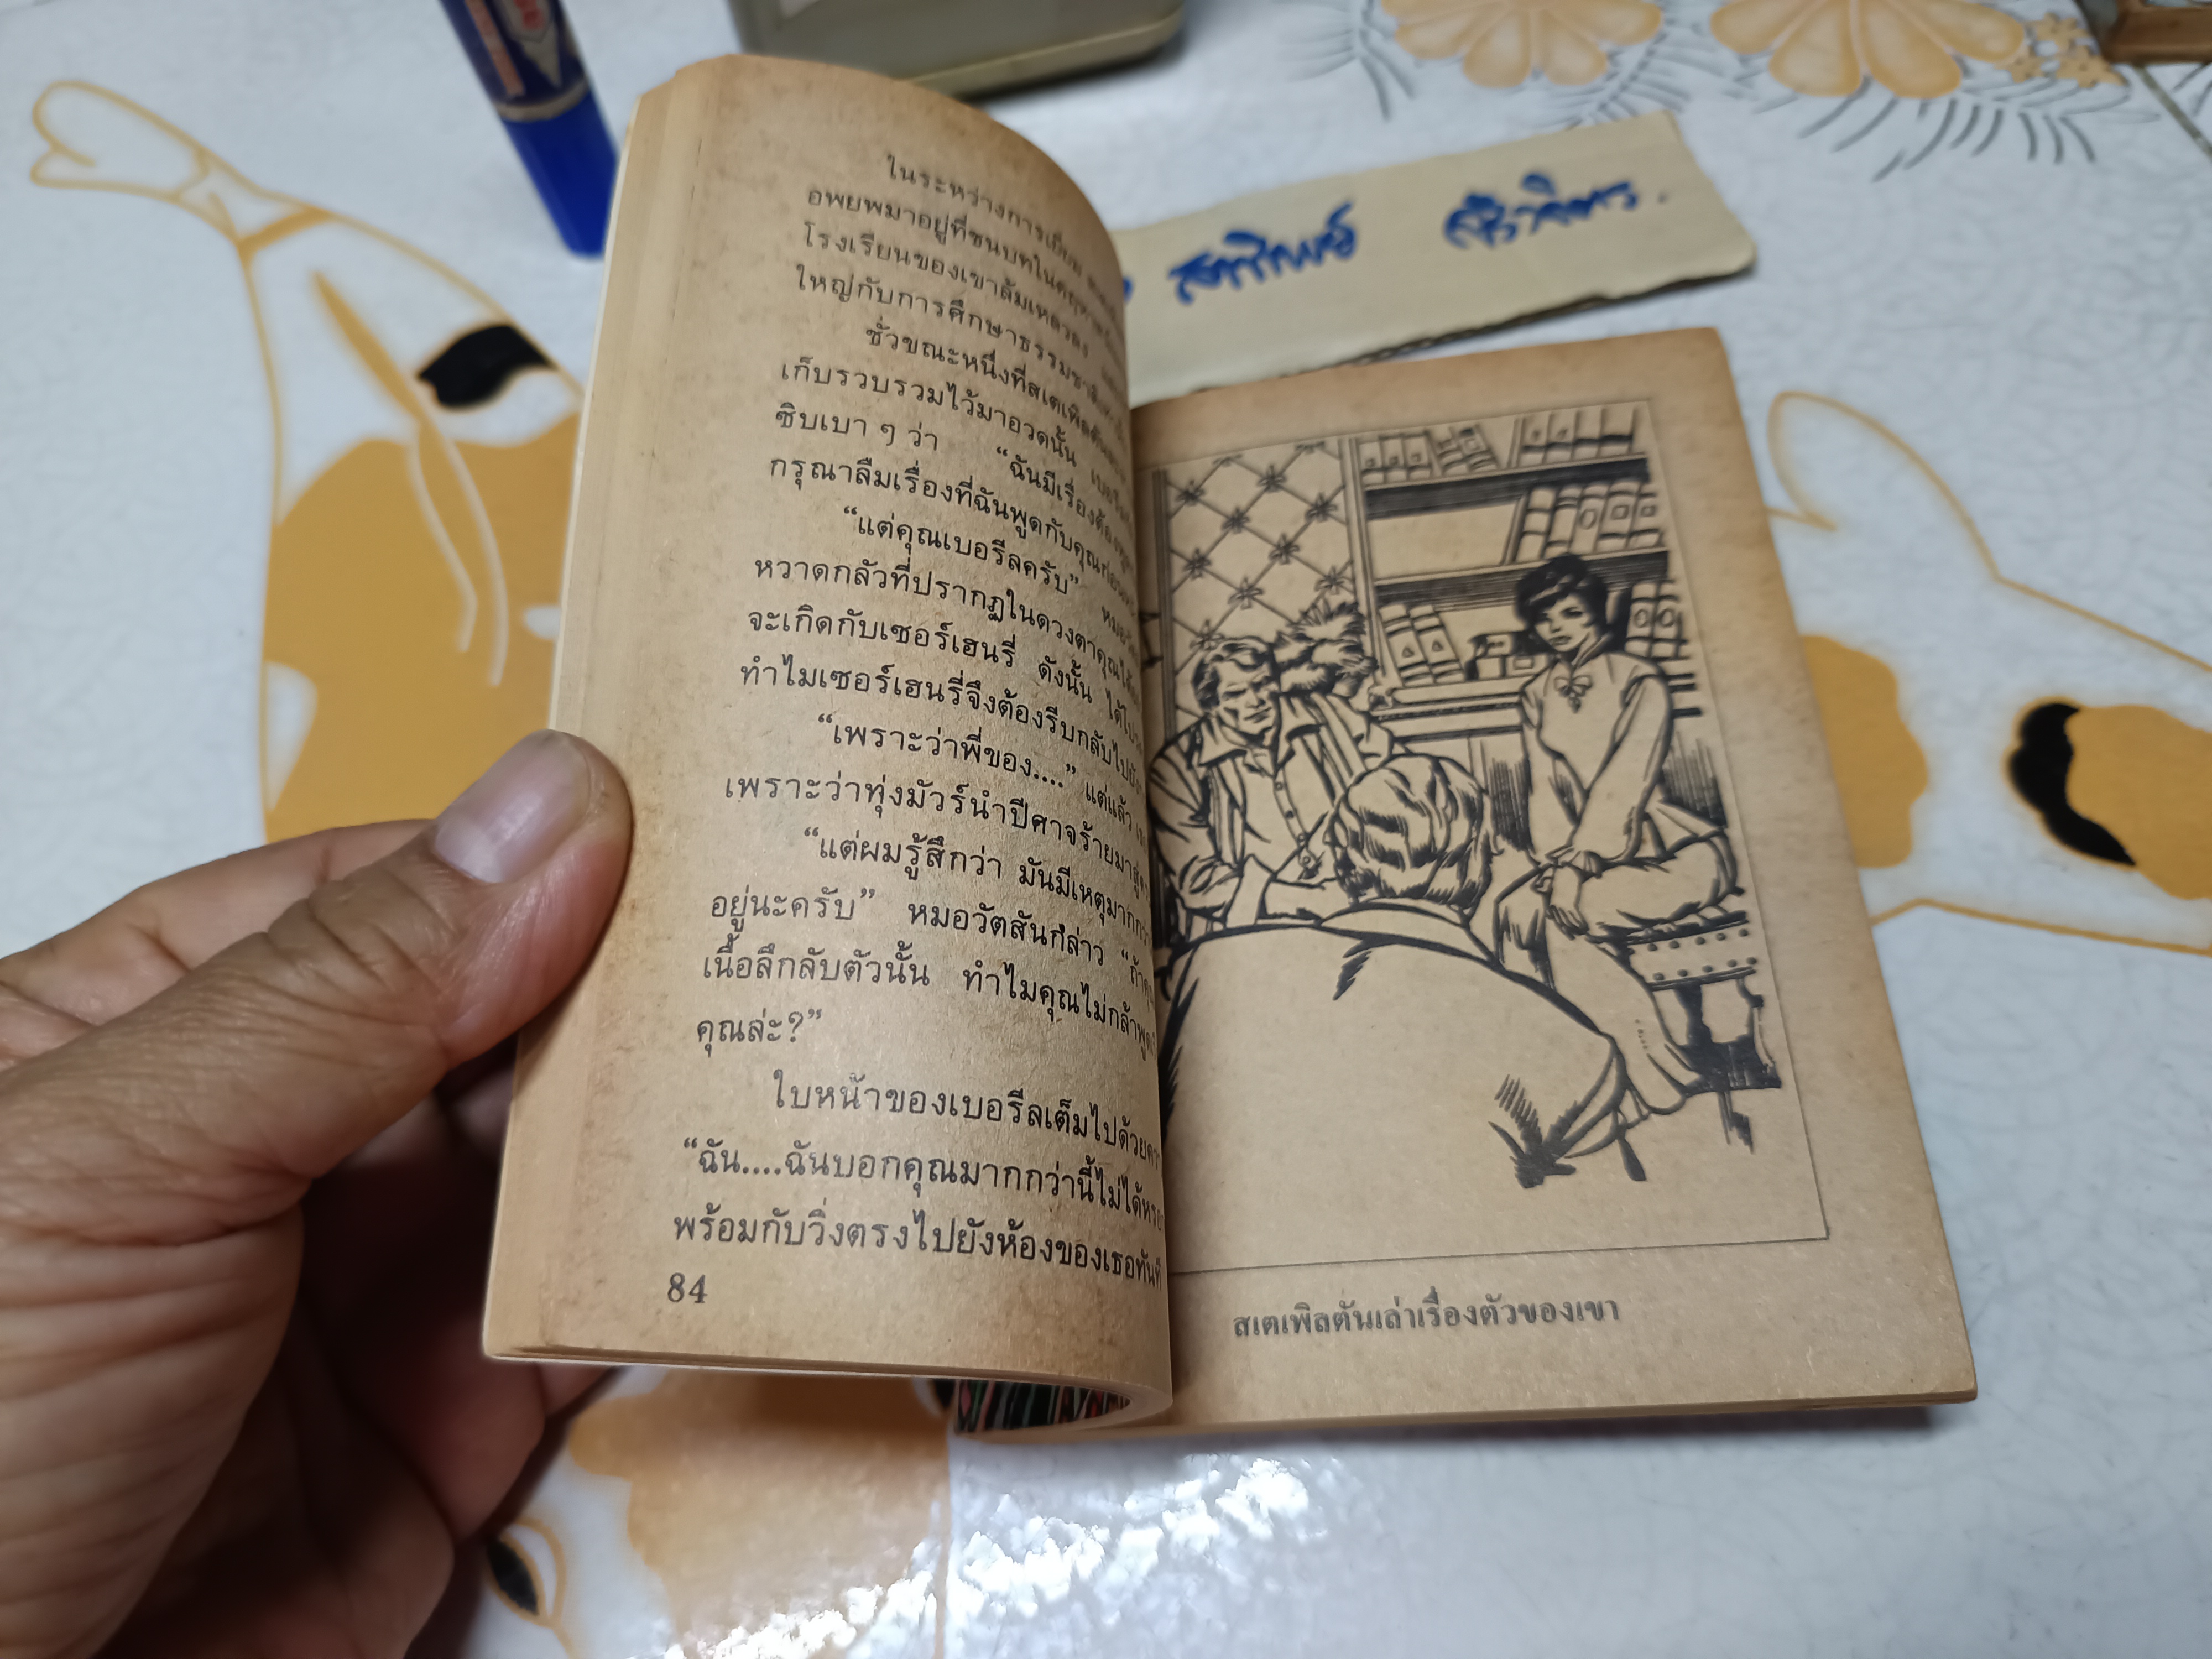 ในระหว่างการเยี่ยม
อพยพมาอยู่ที่ชนบทใน
โรงเรียนของเขาล้มเหลวลง
ใหญ่กับการศึกษาธรรมชาติ
ชั่วขณะหนึ่งที่สเตเพิลตัน
เก็บรวบรวมไว้มาอวดนั้น เบอรีล
ซิบเบา ๆ ว่า “ฉันมีเรื่องต้อง
กรุณาลืมเรื่องที่ฉันพูดกับคุณ
“แต่คุณเบอรีลครับ” หมอวัตสัน
หวาดกลัวที่ปรากฏในดวงตาคุณได้
จะเกิดกับเซอร์เฮนรี่ ดังนั้น ได้โปร
ทำไมเซอร์เฮนรี่จึงต้องรีบกลับไปยัง
“เพราะว่าพี่ของ....” แต่แล้ว เ
เพราะว่าทุ่งมัวร์นำปีศาจร้ายมาสู่
“แต่ผมรู้สึกว่า มันมีเหตุมากกว่า
อยู่นะครับ” หมอวัตสันกล่าว “ถ้า
เนื้อลึกลับตัวนั้น ทำไมคุณไม่กล้าพูด
คุณล่ะ?”
ใบหน้าของเบอรีลเต็มไปด้วยคว
“ฉัน....ฉันบอกคุณมากกว่านี้ไม่ได้หรอ
พร้อมกับวิ่งตรงไปยังห้องของเธอทันที
84
สเตเพิลตันเล่าเรื่องตัวของเขา